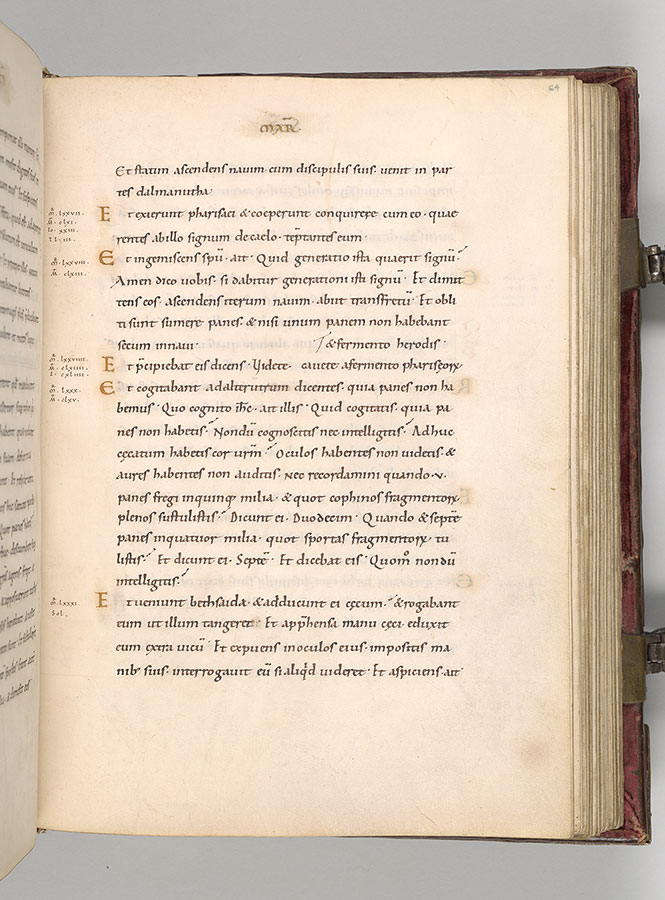 64
MAR̄
Et statim ascendens nauim cum discipulis suis uenit in par
tes dalmanutha·
Et exierunt pharisaei & coeperunt conquirere cum eo· quae
rentes ab illo signum de caelo· tēptantes eum·
Et ingemiscens spū· ait· Quid generatio ista quaerit signū·
Amen dico uobis· si dabitur generationi isti signū· Et dimit
tens eos· ascendens iterum nauim abiit trans fretū· Et obli
ti sunt sumere panes· & nisi unum panem non habebant
secum in naui· & fermento herodis·
Et p̄cipiebat eis dicens· Videte· cauete a fermento phariseorꝝ
Et cogitabant ad alterutrum dicentes· quia panes non ha
bemus· Quo cognito ih̄c· ait illis· Quid cogitatis quia pa
nes non habetis· Nondū cognoscitis nec intelligitis· Adhuc
cęcatum habetis cor urm̄· Oculos habentes non uidetis· &
aures habentes non auditis· Nec recordamini quando ·v·
panes fregi in quinq; milia· & quot cophinos fragmentorꝝ
plenos sustulistis· Dicunt ei· Duodecim· Quando & septē
panes in quatuor milia· quot sportas fragmentorꝝ· tu
listis· Et dicunt ei· Septē· Et dicebat eis· Quom̊ nondū
intelligitis·
Et ueniunt bethsaida· & adducunt ei cęcum· & rogabant
eum ut illum tangeret· Et app̄hensa manu cęci· eduxit
eum extra uicū· Et expuens in oculos eius· impositis ma
nib; suis· interrogauit eū si aliq̇d uideret· Et aspiciens ait·
m̄· lxxvii·
m̄· clxi·
lo· xxiii·
m̄· lxxviii·
m̄· clxiii·
m̄· lxxviiii·
m̄· clxiiii·
l· cxliiii·
m̄· lxxx·
m̄· clxv·
m̄· lxxxi·
Sol·